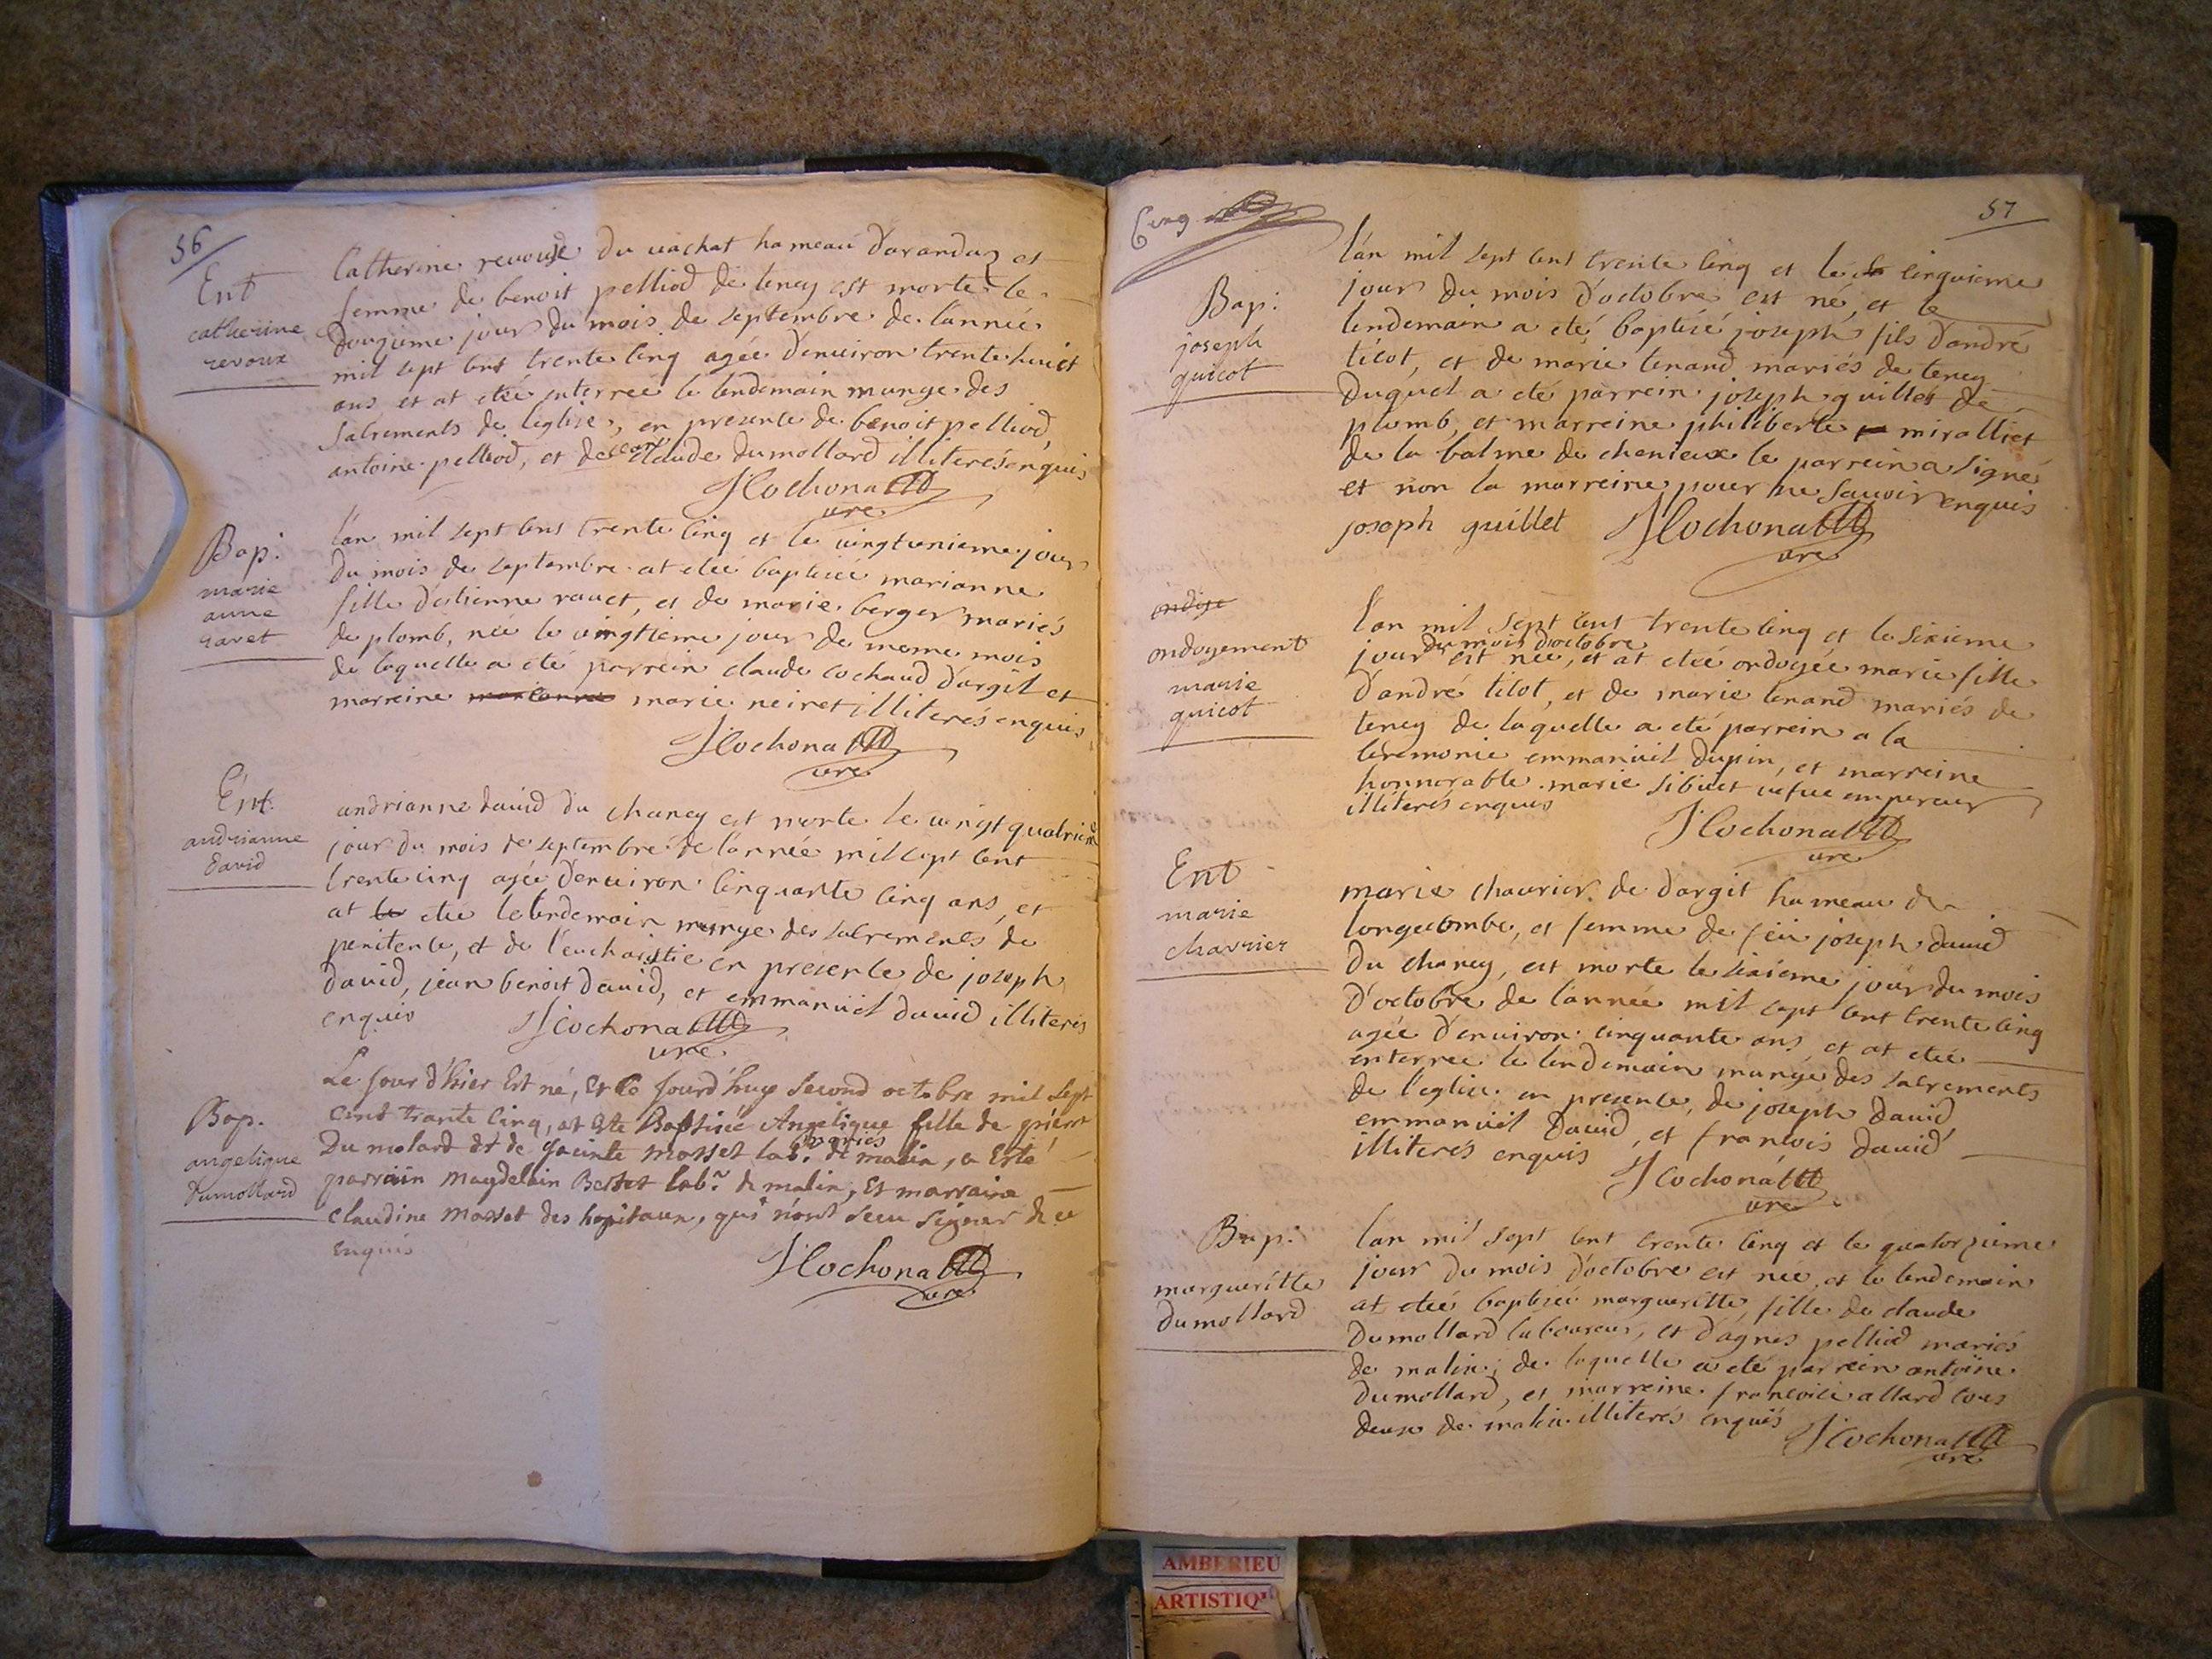 56
Ent
catherine
revoux
Catherine revouse du vachat hameau d'arandaz et
femme de benoit pelliod de tency est morte le
douzieme jour du mois de septembre de l'année
mil sept cent trente cinq agée d'environ trente huict
ans et at etéé enterreé le lendemain munye des
sacrements de l'eglise, en presence de benoit pelliod,
antoine pelliod, et de claude dumollard illiterés enquis
J Cochonat
cure
Bap:
marie
anne
ravet
l'an mil sept cens trente cinq et le vingtunieme jour
du mois de septembre at etéé baptiséé marianne
fille d'estienne ravet, et de marie berger mariés
de plomb, néé le vingtieme jour de meme mois
de laquelle a eté parrein claude cochaud d'argil et
marreine marie neiret illiterés enquis
J Cochonat
cure
Ent.
andrianne
david
andrianne david du chaney est morte le vingt quatrieme
jour du mois de septembre de l'année mil sept cent
trente cinq agéé d'environ cinquante cinq ans, et
at etéé le lendemain munye des sacrements de
penitence, et de l'eucharistie en presence de joseph
david, jean benoit david, et emmanuel david illiterés
enquis
J Cochonat
cure
Bap.
angelique
dumollard
Le jour d'hier Est né, Et Ce jourd'huy second octobre mil sept
cent trante cinq, at Este Baptisée Angelique fille de pierre
Du molard et de jacinte mosset lab.r mariés de malin, a Esté
parrain magdelain Bertet lab.r de malin, Et marraine
claudine mosset des hopitaux, qui n'ont sceu signer de ce
enquis
J Cochonat
cure
Cinq
57
Bap:
joseph
guicot
l'an mil sept cent trente cinq et le cinquieme
jour du mois d'octobre est né, et le
lendemain a eté baptisé joseph fils d'andré
ticot, et de marie tenand mariés de tency
duquel a eté parrein joseph guillet de
plomb, et marreine philiberte miralliet
de la balme de chenieux le parrein a signé
et non la marreine pour ne scavoir enquis
joseph guillet J Cochonat
cure
ondoyement
marie
guicot
l'an mil sept cent trente cinq et le sixieme
jour du mois d'octobre est néé, et at etéé ondoyée marie fille
d'andré ticot, et de marie tenand mariés de
tency de laquelle a eté parrein a la
ceremonie emmanuel dupin, et marreine
honnorable marie sibuet vefve empereur
illiterés enquis
J Cochonat
cure
Ent
marie
chavrier
marie chavrier de d'argit hameau de
longecombe, et femme de feu joseph david
du chaney, est morte le sixieme jour du mois
d'octobre de l'année mil sept cent trente cinq
agéé d'environ cinquante ans, et at etéé
enterreé le lendemain munye des sacrements
de l'eglise en presence, de joseph david,
emmanuel david, et francois david
illiterés enquis
J Cochonat
cure
Bap:
margueritte
dumollard
l'an mil sept cent trente cinq et le quatorzieme
jour du mois d'octobre est néé, et le lendemain
at etéé baptiséé margueritte, fille de claude
dumollard laboureur, et d'agnes pelliod mariés
de malin; de laquelle a eté parrein antoine
dumollard, et marreine francoise allard tous
deux de malin illiterés enquis
J Cochonat
cure
AMBERIEU
ARTISTIQ